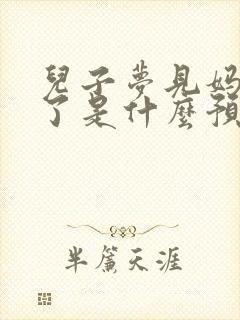 兒子夢見媽
了是什麼預
半簾天涯